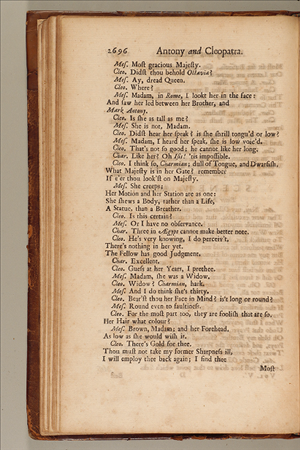 2696 Antony and Cleopatra.
Mes. Most gracious Majesty.
Cleo. Didst thou behold Octavia?
Mes. Ay, dread Queen.
Cleo. Where?
Mes. Madam, in Rome, I lookt her in the face:
And saw her led between her Brother, and
Mark Antony.
Cleo. Is she as tall as me?
Mes. She is not, Madam.
Cleo. Didst hear her speak? is she shrill tongu'd or low?
Mes. Madam, I heard her speak, she is low voic'd.
Cleo. That's not so good; he cannot like her long.
Char. Like her? Oh Isis! 'tis impossible.
Cleo. I think so, Charmian; dull of Tongue, and Dwarfish.
What Majesty is in her Gate? remember
If e'er thou look'st on Majesty.
Mes. She creeps;
Her Motion and her Station are as one:
She shews a Body, rather than a Life,
A Statue, than a Breather.
Cleo. Is this certain?
Mes. Or I have no observance.
Char. Three in Ægypt cannot make better note.
Cleo. He's very knowing, I do perceiv't,
There's nothing in her yet.
The Fellow has good Judgment.
Char. Excellent.
Cleo. Guess at her Years, I prethee.
Mes. Madam, she was a Widow.
Cleo. Widow? Charmian, hark.
Mes. And I do think she's thirty.
Cleo. Bear'st thou her Face in Mind? is't long or round?
Mes. Round even to faultiness.
Cleo. For the most part too, they are foolish that are so.
Her Hair what colour?
Mes. Brown, Madam: and her Forehead.
As low as she would wish it.
Cleo. There's Gold for thee.
Thou must not take my former Sharpness ill,
I will employ thee back again; I find thee
Most